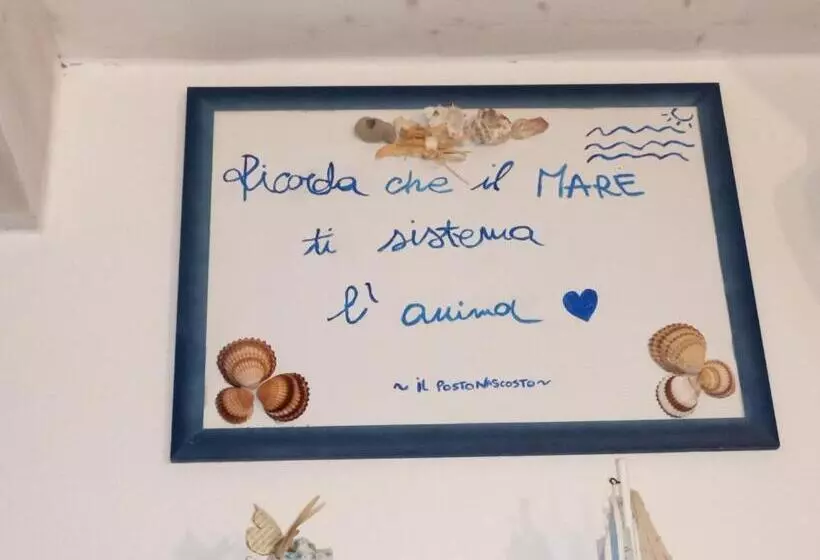 Ricorda che il MARE
ti sistema
l' anima
~ iL POSTO NASCOSTO ~